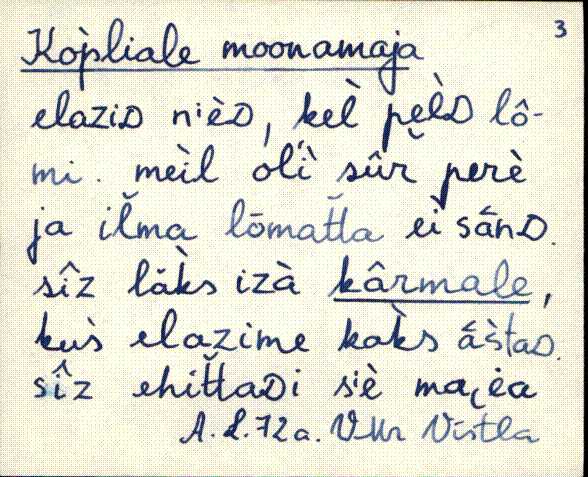 3
Kòpliale moonamaja
elaziD nièD, kel̀ pèl̀D lô-
mi. meìl ol'ì sûr perè
ja ilma lōmatta eì sǟnD.
sîz läk̀s izà kârmale,
kus̀ elazime kak̀s ǟs̀taD.
sîz ehittaDi s'è maja
A. L. 72 a. VNr Vistla